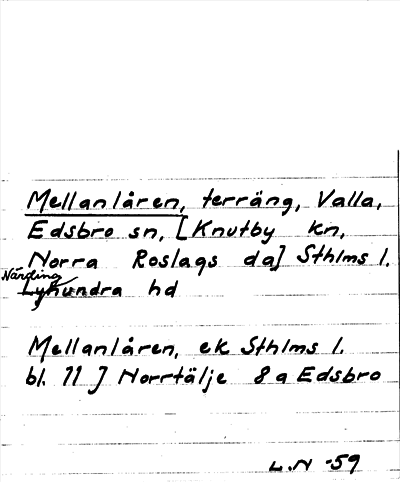 Mellanlåren, terräng, Valla,
Edsbro sn, [Knutby kn,
Norra Roslags da] Sthlms l.
Närding
Lyhundra hd
Mellanlåren, ek Sthlms l.
bl. 11 J Norrtälje 8a Edsbro
L.N -59